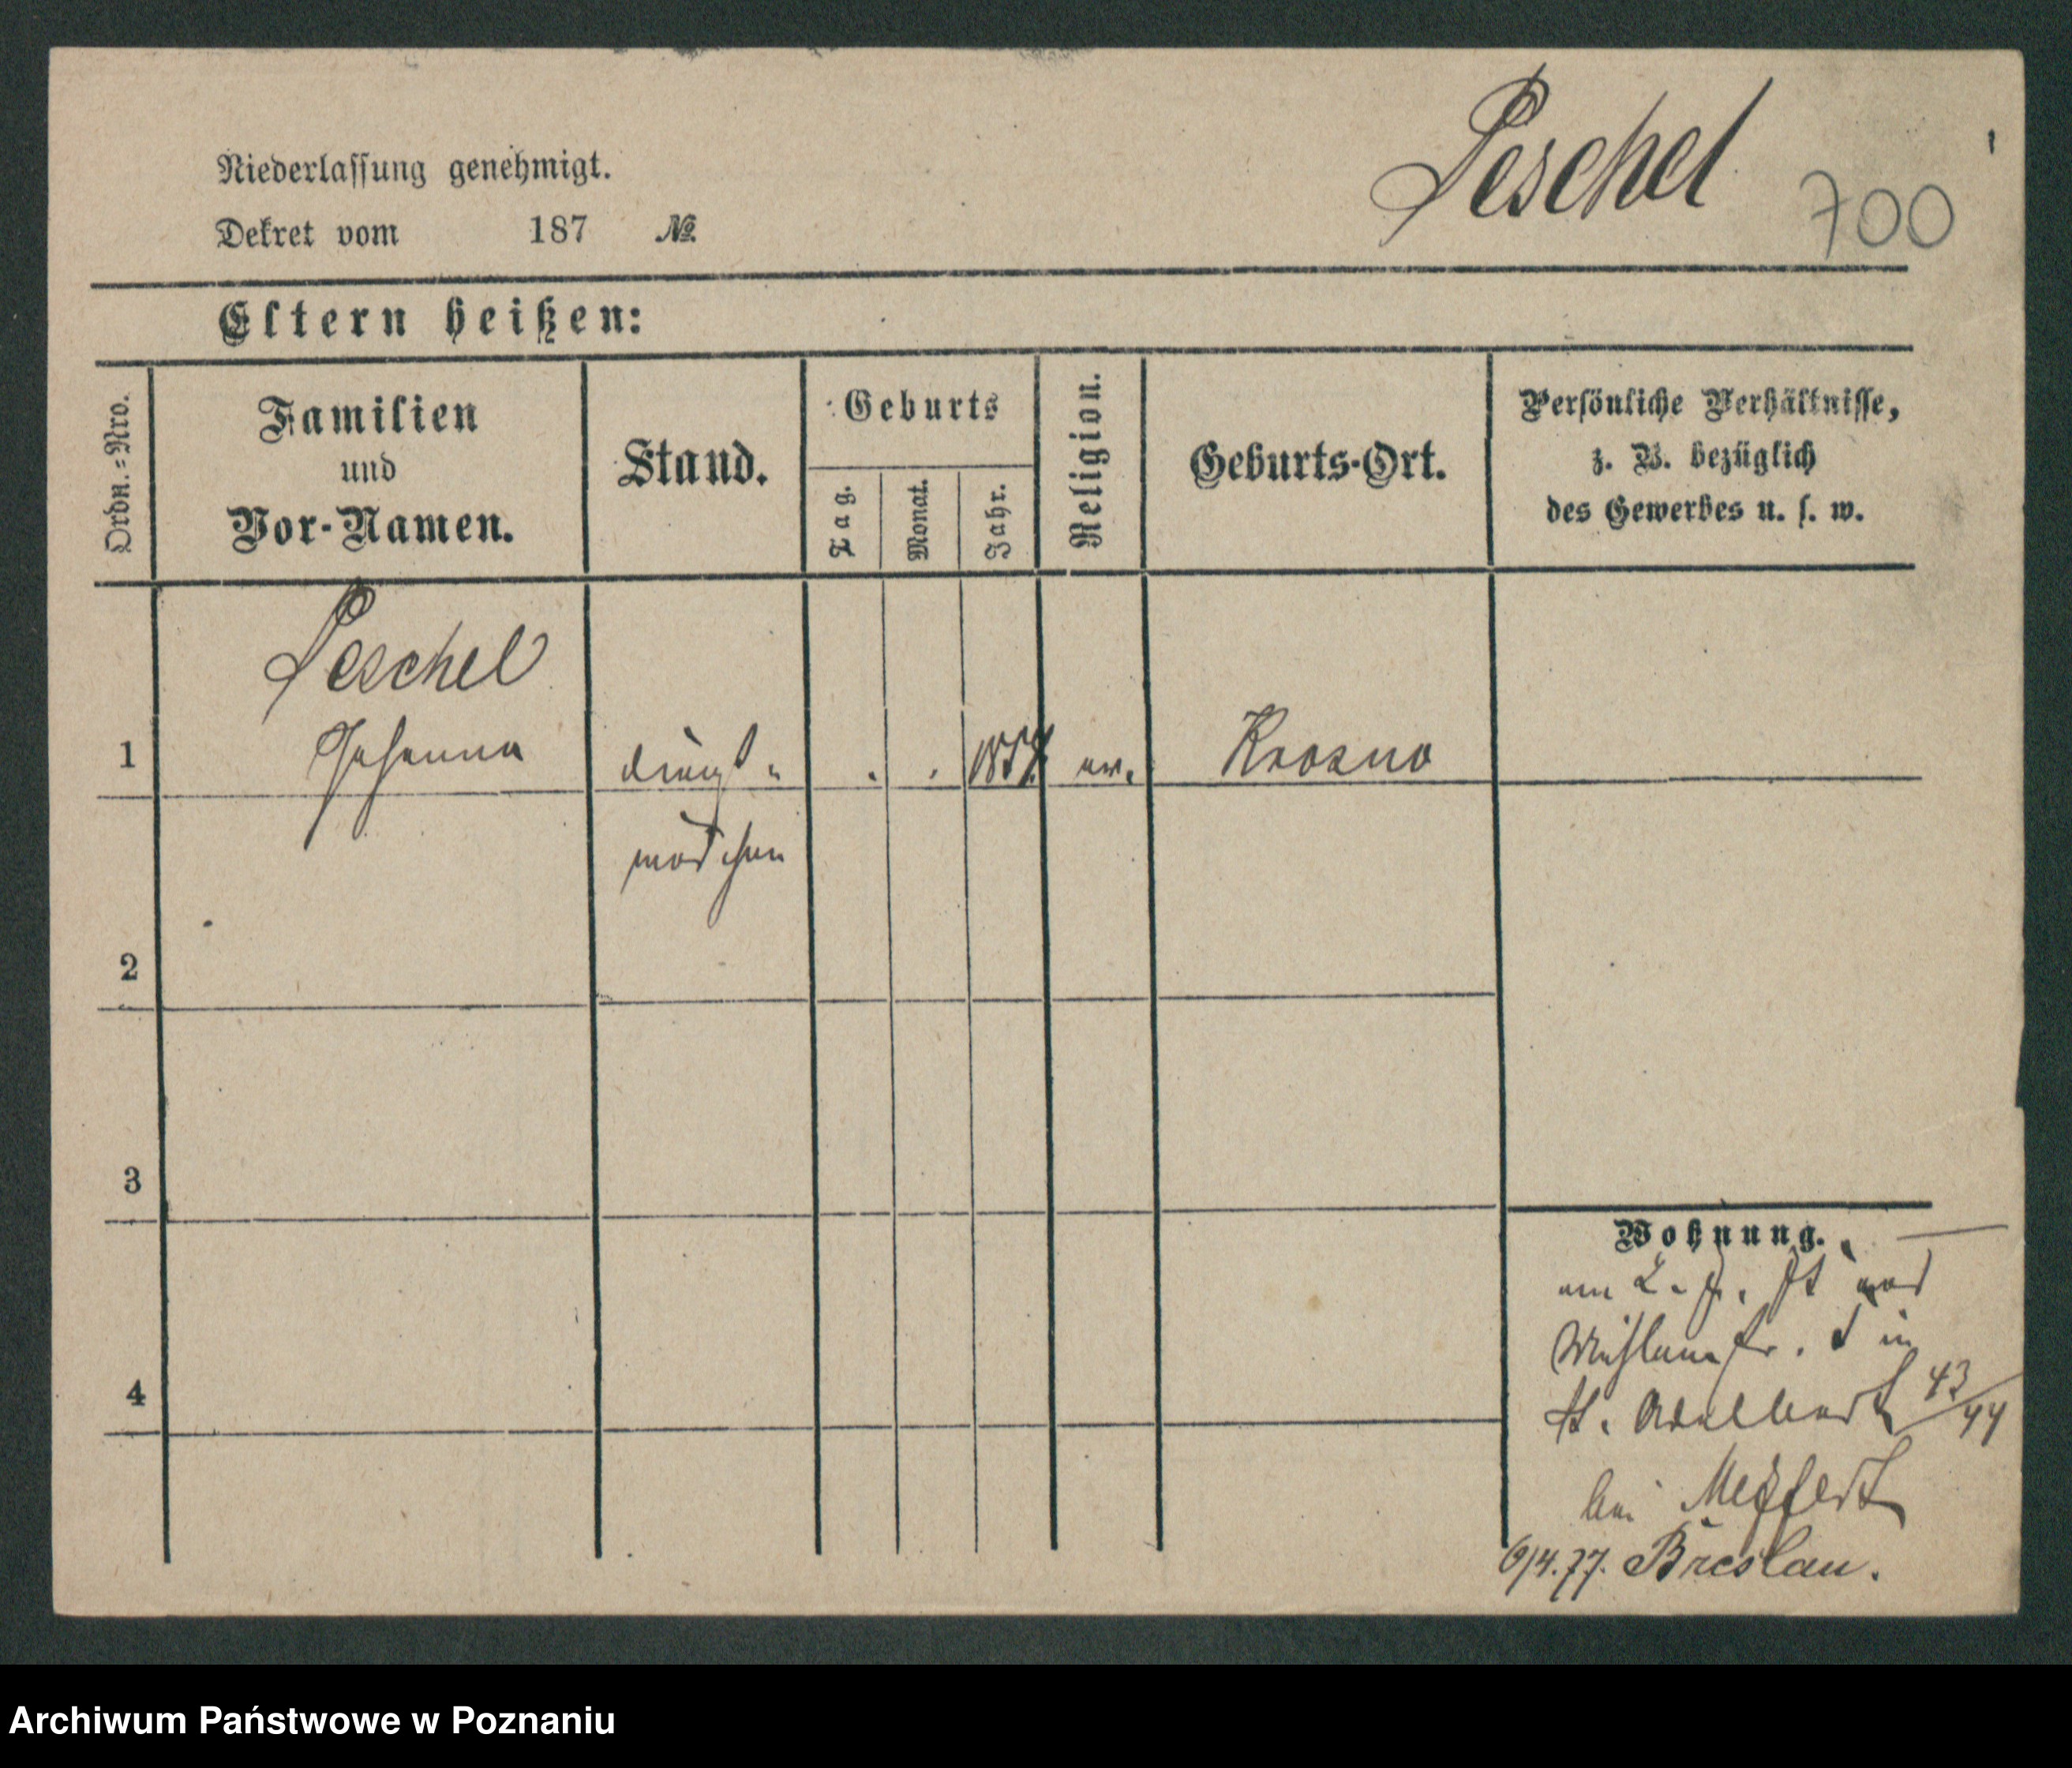 Peschel
700
Niederlassung genehmigt.
Dekret vom 187 №
Eltern heißen:
Ordn.=Nro.
Familien
und
Vor-Namen.
Stand.
Geburts
Tag.
Monat.
Jahr.
Religion.
Geburts-Ort.
Persönliche Verhältnisse,
z. B. bezüglich
des Gewerbes u. s. w.
Peschel
1 Johanna Dienst= ev. Krosno
mädchen
2
3
4
Wohnung.
am
Mühlenstr. in
St. Adalbert 43/44
bei
6/4.77. Breslau.
Archiwum Państwowe w Poznaniu